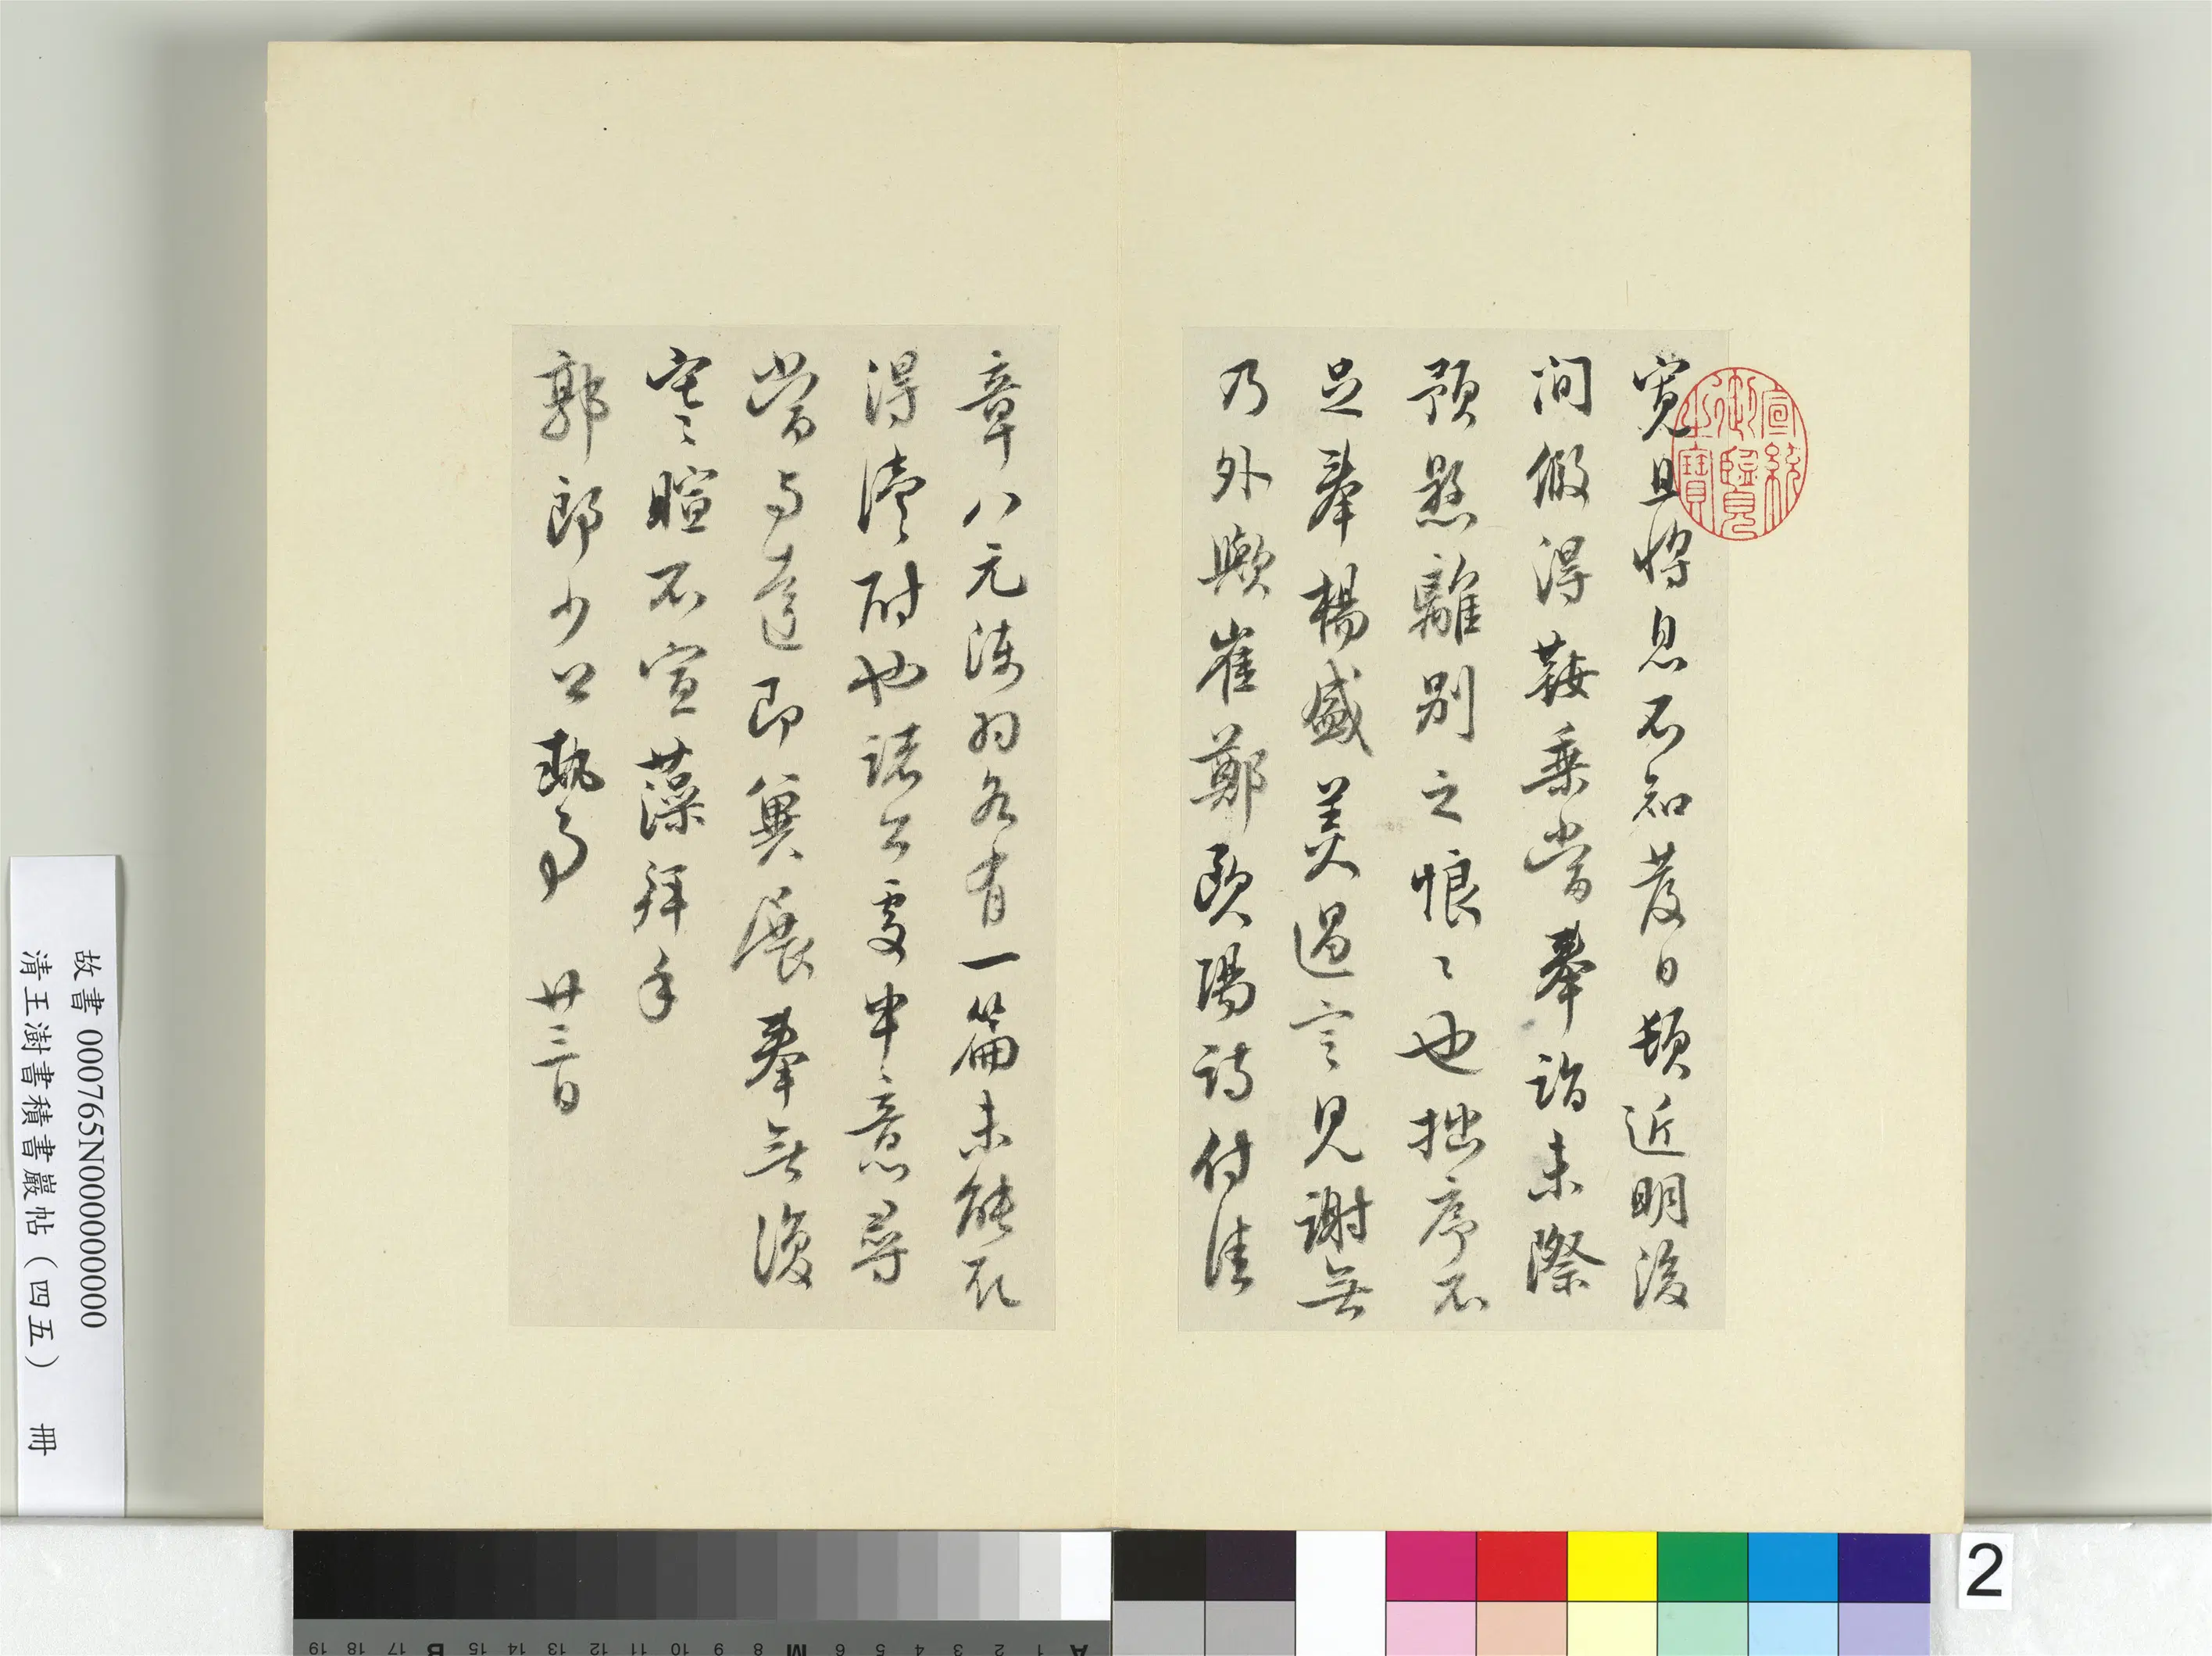 寬且將息不知發日頓近明後
間假得鞍乘當奉詣未際
預愁離別之恨〻也拙序不
足奉揚盛美過言見謝無
乃外歟崔鄭歐陽詩付往
章八元陳羽各有一篇未能

得附也諸公處申意尋
當與達即冀展奉無復
喧不宣藻拜手
郭郎少公執事 廿三日
宣統御覽之寶
故書 000765N000000000
清王澍書積書巖帖（四五） 冊
2
A 1 2 3 4 5 6 M 8 9 10 11 12 13 14 15 B 17 18 19